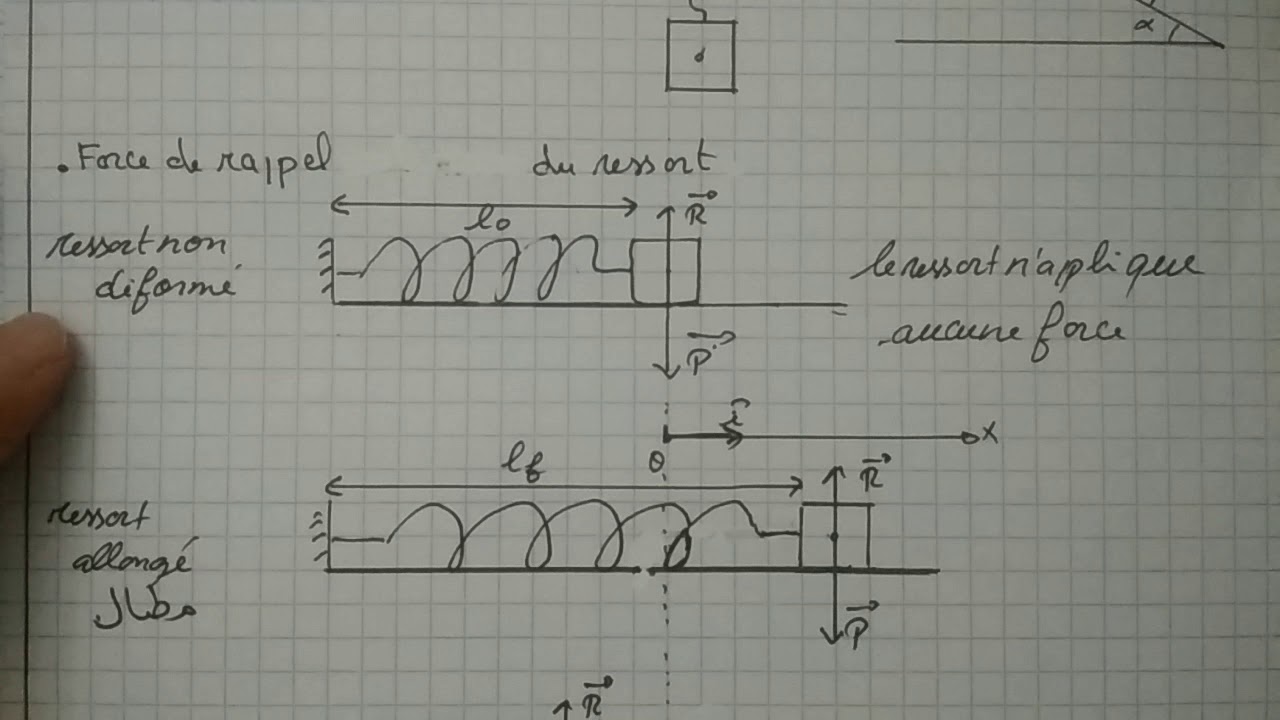 α
. Force de rappel du ressort
l₀
R
ressort non
diformé
le ressort n'applique
aucune force
P
i
x
0
lf
R
ressort
allongé
مطال
P
R